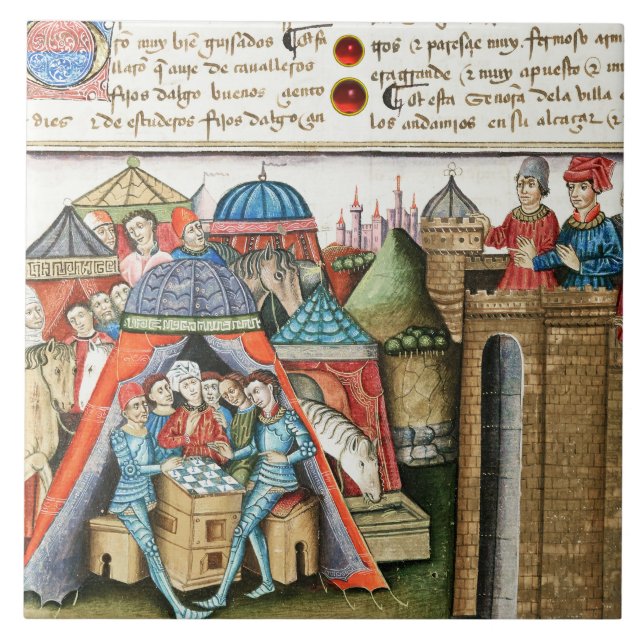 muy biẽ guisados ¶
que auje de caualleros
fijos dalgo buenos çiento
dies ⁊ de escuderos fijos dalgo
⁊ paresçe muy fermoso
era grande ⁊ muy apuesto ⁊
¶ Et esta señora dela villa
los andamios en su alcaçar ⁊